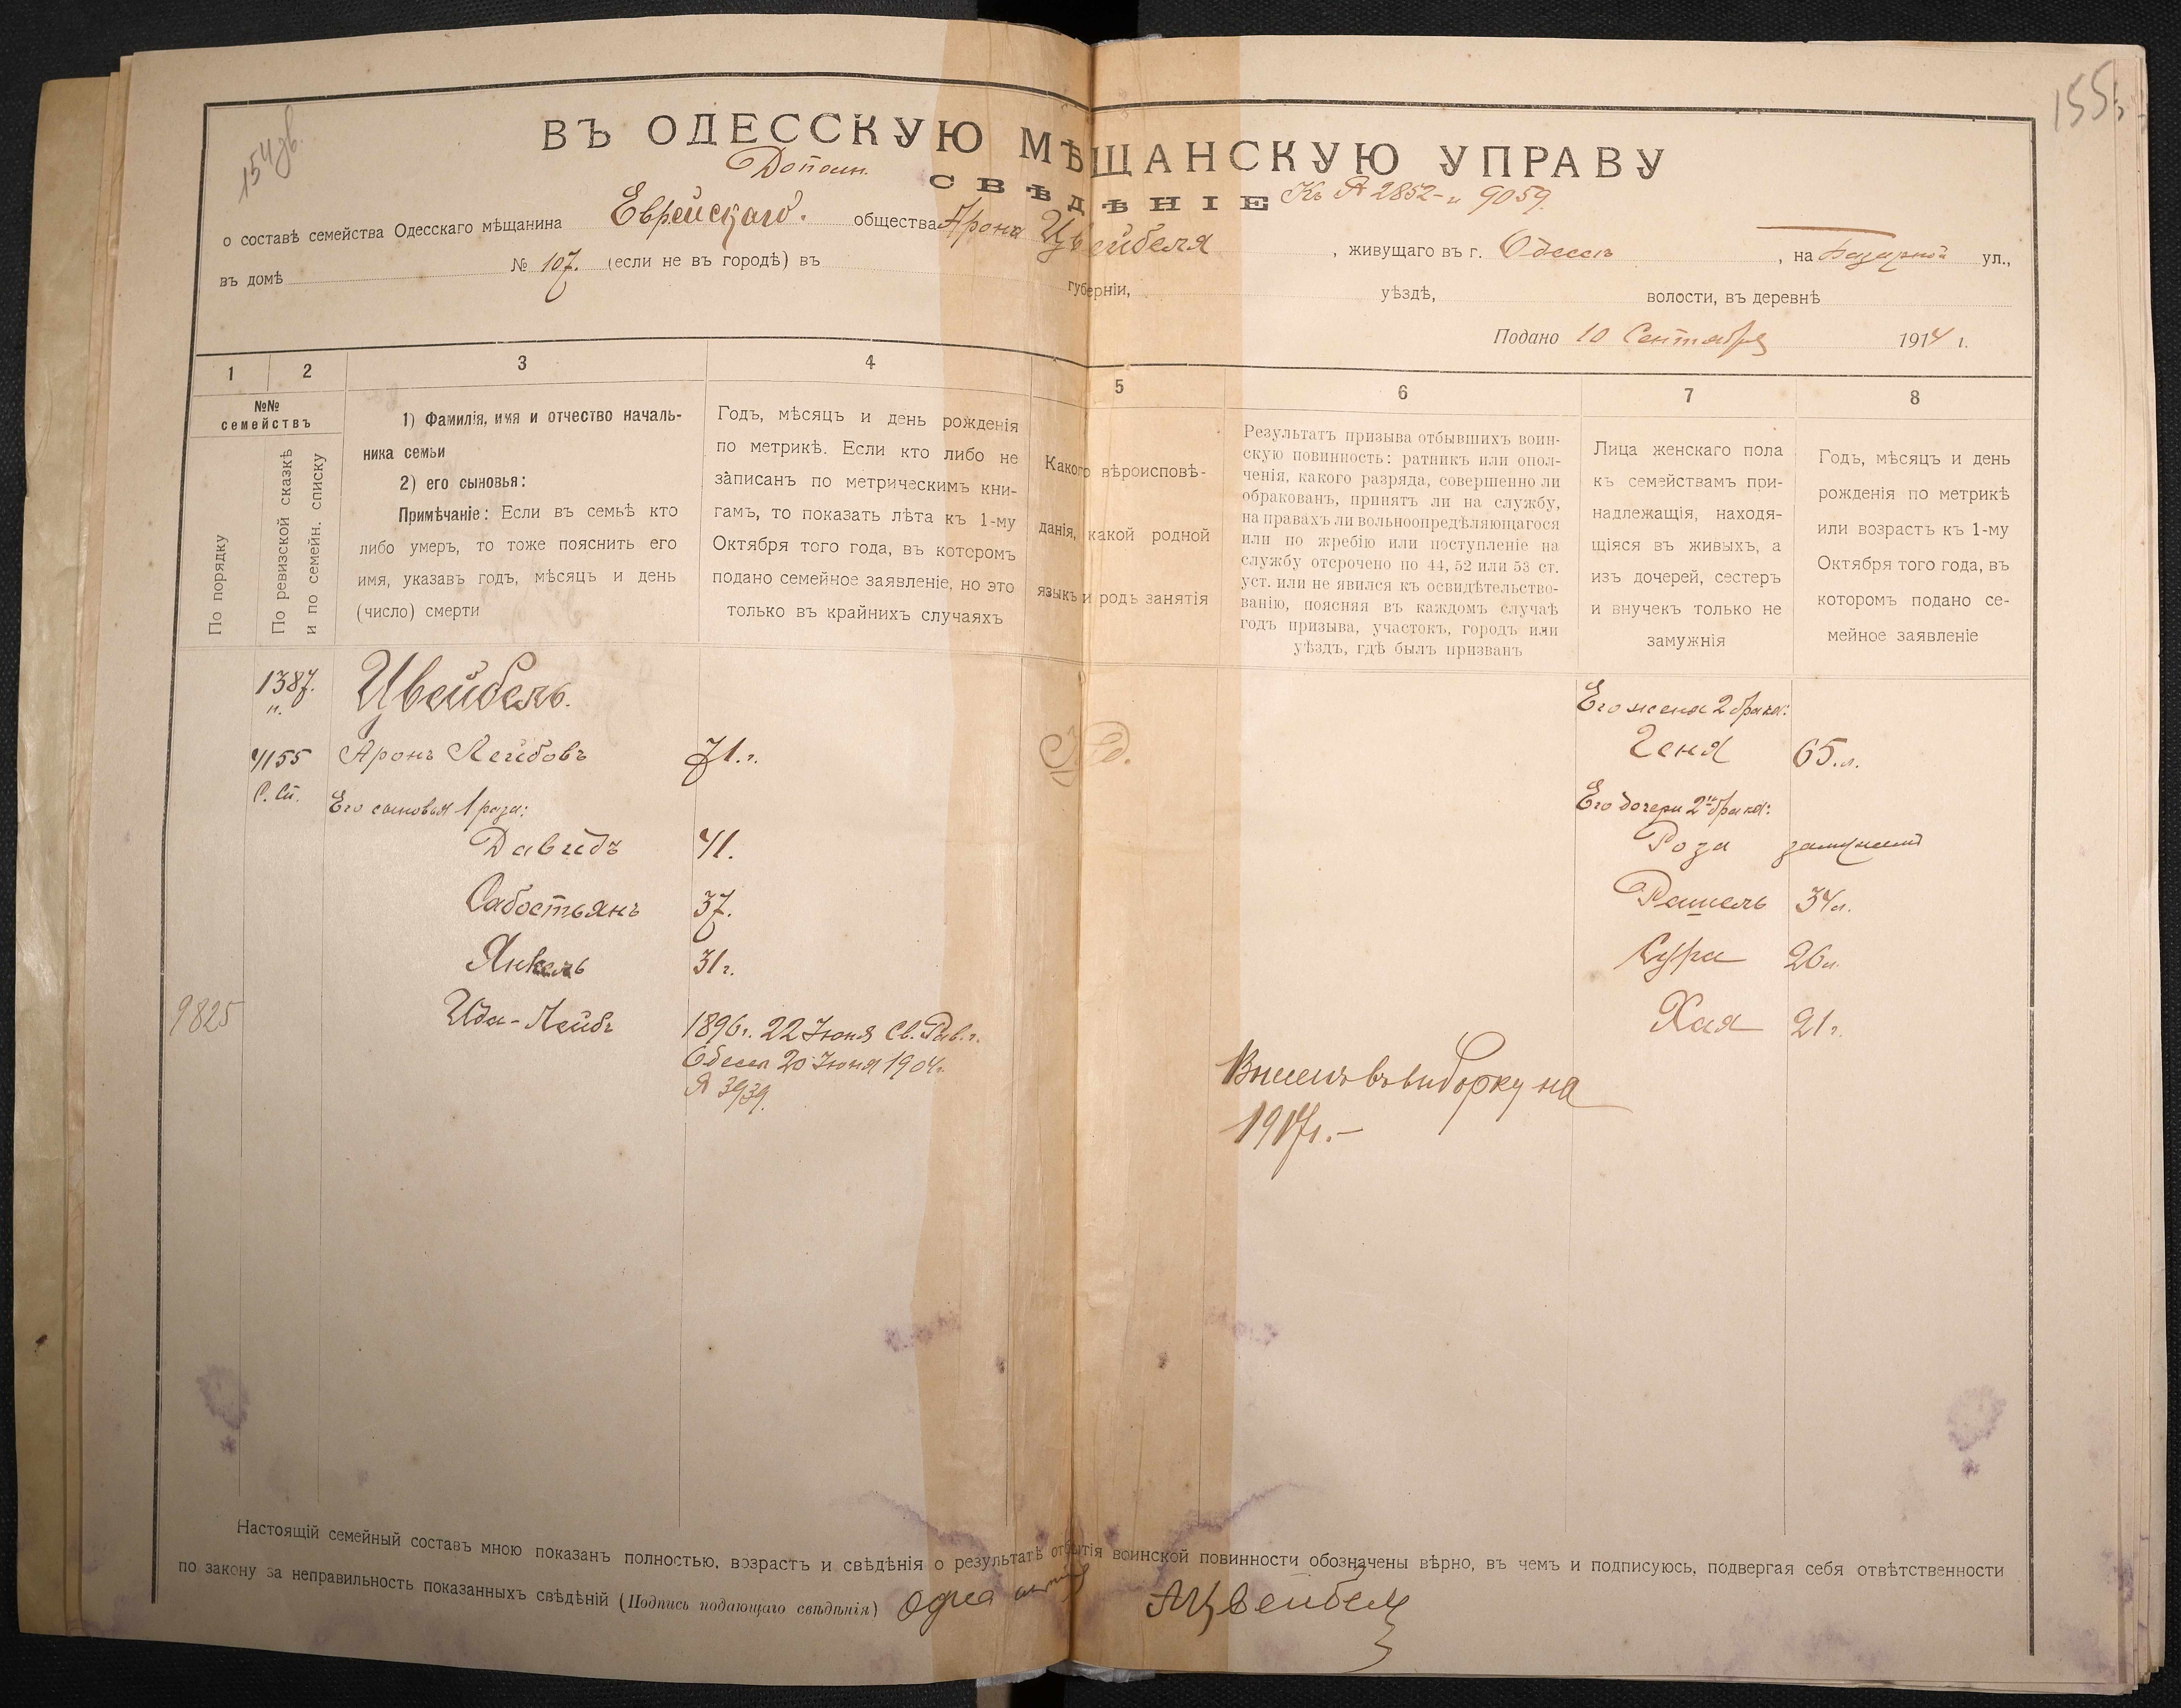 154 об.
155
ВЪ ОДЕССКУЮ МѢЩАНСКУЮ УПРАВУ
Дополн.
СВѢДѢНІЕ Къ № 2852 - и 9059.
о составѣ семейства Одесскаго мѣщанина Еврейскаго. общества Арона Цвейбеля, живущаго въ г. Одессѣ, на Базарной ул.,
въ домѣ № 107. (если не въ городѣ) въ губерніи, уѣздѣ, волости, въ деревнѣ
Подано 10 Сентября 1914 г.
1 2 3 4 5 6 7 8
№№
семействъ
По порядку
По ревизской сказкѣ
и по семейн. списку
1) Фамилія, имя и отчество началь-
ника семьи
2) его сыновья:
Примѣчаніе: Если въ семьѣ кто
либо умеръ, то тоже пояснить его
имя, указавъ годъ, мѣсяцъ и день
(число) смерти
Годъ, мѣсяцъ и день рожденія
по метрикѣ. Если кто либо не
записанъ по метрическимъ кни-
гамъ, то показать лѣта къ 1-му
Октября того года, въ которомъ
подано семейное заявленіе, но это
только въ крайнихъ случаяхъ
Какого вѣроисповѣ-
данія, какой родной
языкъ и родъ занятія
Результатъ призыва отбывшихъ воин-
скую повинность: ратникъ или опол-
ченія, какого разряда, совершенно ли
обракованъ, принятъ ли на службу,
на правахъ ли вольноопредѣляющагося
или по жребію или поступленіе на
службу отсрочено по 44, 52 или 53 ст.
уст. или не явился къ освидѣтельство-
ванію, поясняя въ каждомъ случаѣ
годъ призыва, участокъ, городъ или
уѣздъ, гдѣ былъ призванъ
Лица женскаго пола
къ семействамъ при-
надлежащія, находя-
щіяся въ живыхъ, а
изъ дочерей, сестеръ
и внучекъ только не
замужнія
Годъ, мѣсяцъ и день
рожденія по метрикѣ
или возрастъ къ 1-му
Октября того года, въ
которомъ подано се-
мейное заявленіе
1387. Цвейбель. Его жена 2 брака:
и.
4155 Аронъ Лейбовъ 71.г. Іуд. Геня 65.л.
С. Сп. Его сыновья 1 раза: Его дочери 2го брака:
Давидъ 41. Роза замужемъ
Сабостьянъ 37. Рашель 34 л.
Янкель 31 г. Сура 26 л.
9825 Ида-Лейбъ 1896 г. 22 Іюня Св. Рав. г. Хая 21 г.
Одессы 20 Іюня 1904 г.
№ 3939.
Внесенъ въ выборку на
1917 г. -
Настоящій семейный составъ мною показанъ полностью, возрастъ и свѣдѣнія о результатѣ отбытія воинской повинности обозначены вѣрно, въ чемъ и подписуюсь, подвергая себя отвѣтственности
по закону за неправильность показанныхъ свѣдѣній (Подпись подающаго свѣдѣнія) АЦвейбель